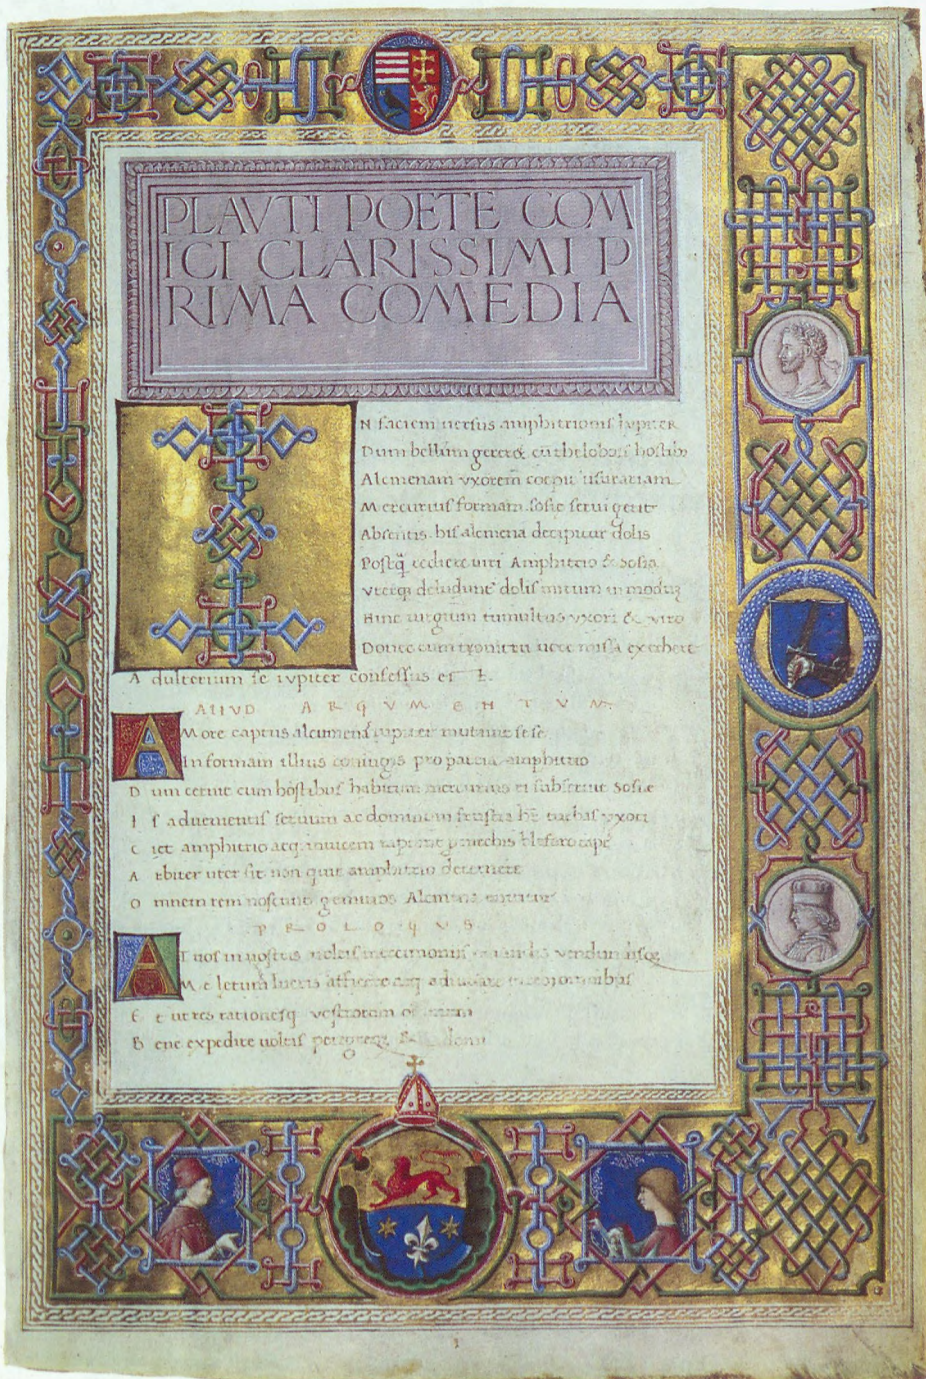 PLAVTI POETE COM
ICI CLARISSIMI P
RIMA COMEDIA
IN faciem uersus amphitrionis Iupiter
Dum bellum gereret cum thelobois hostib
Alcmenam vxorem coepit usurariam
Mercurius formam sosie serui gerit
Absentis. his alcmena decipitur dolis
Postq̃ rediere ueri Amphitrio & Sosia
Vterq; deluduntˀ dolis mirum in modũ
Hinc iurgium tumultus vxori & uiro
Donec cum tonitru uoce missa ex ethere
Adulterium se iupiter confessus est
ALIVD ARGVMENTVM
AMore captus alcumenas iupiter mutauit sese
In formam illius coniugis pro patria amphitrio
Dum cernit cum hostibus habitu mercurius ei subseruit Sosie
Is aduenientis seruum ac dominum frustra hẽt turbas vxori
Ciet amphitrio atq; inuicem
Arbiter uter sit non quit amphitrio decernere
Omnem rem noscunt geminos Alcmena enititur
PROLOGVS
Vos in uostris uoltis mercimoniis
Me letum lucris afficere atq; adiuuare in rebus omnibus
Et ut res rationesq; vestrorum omnium
Bene expedire uoltis peregreq; & domi